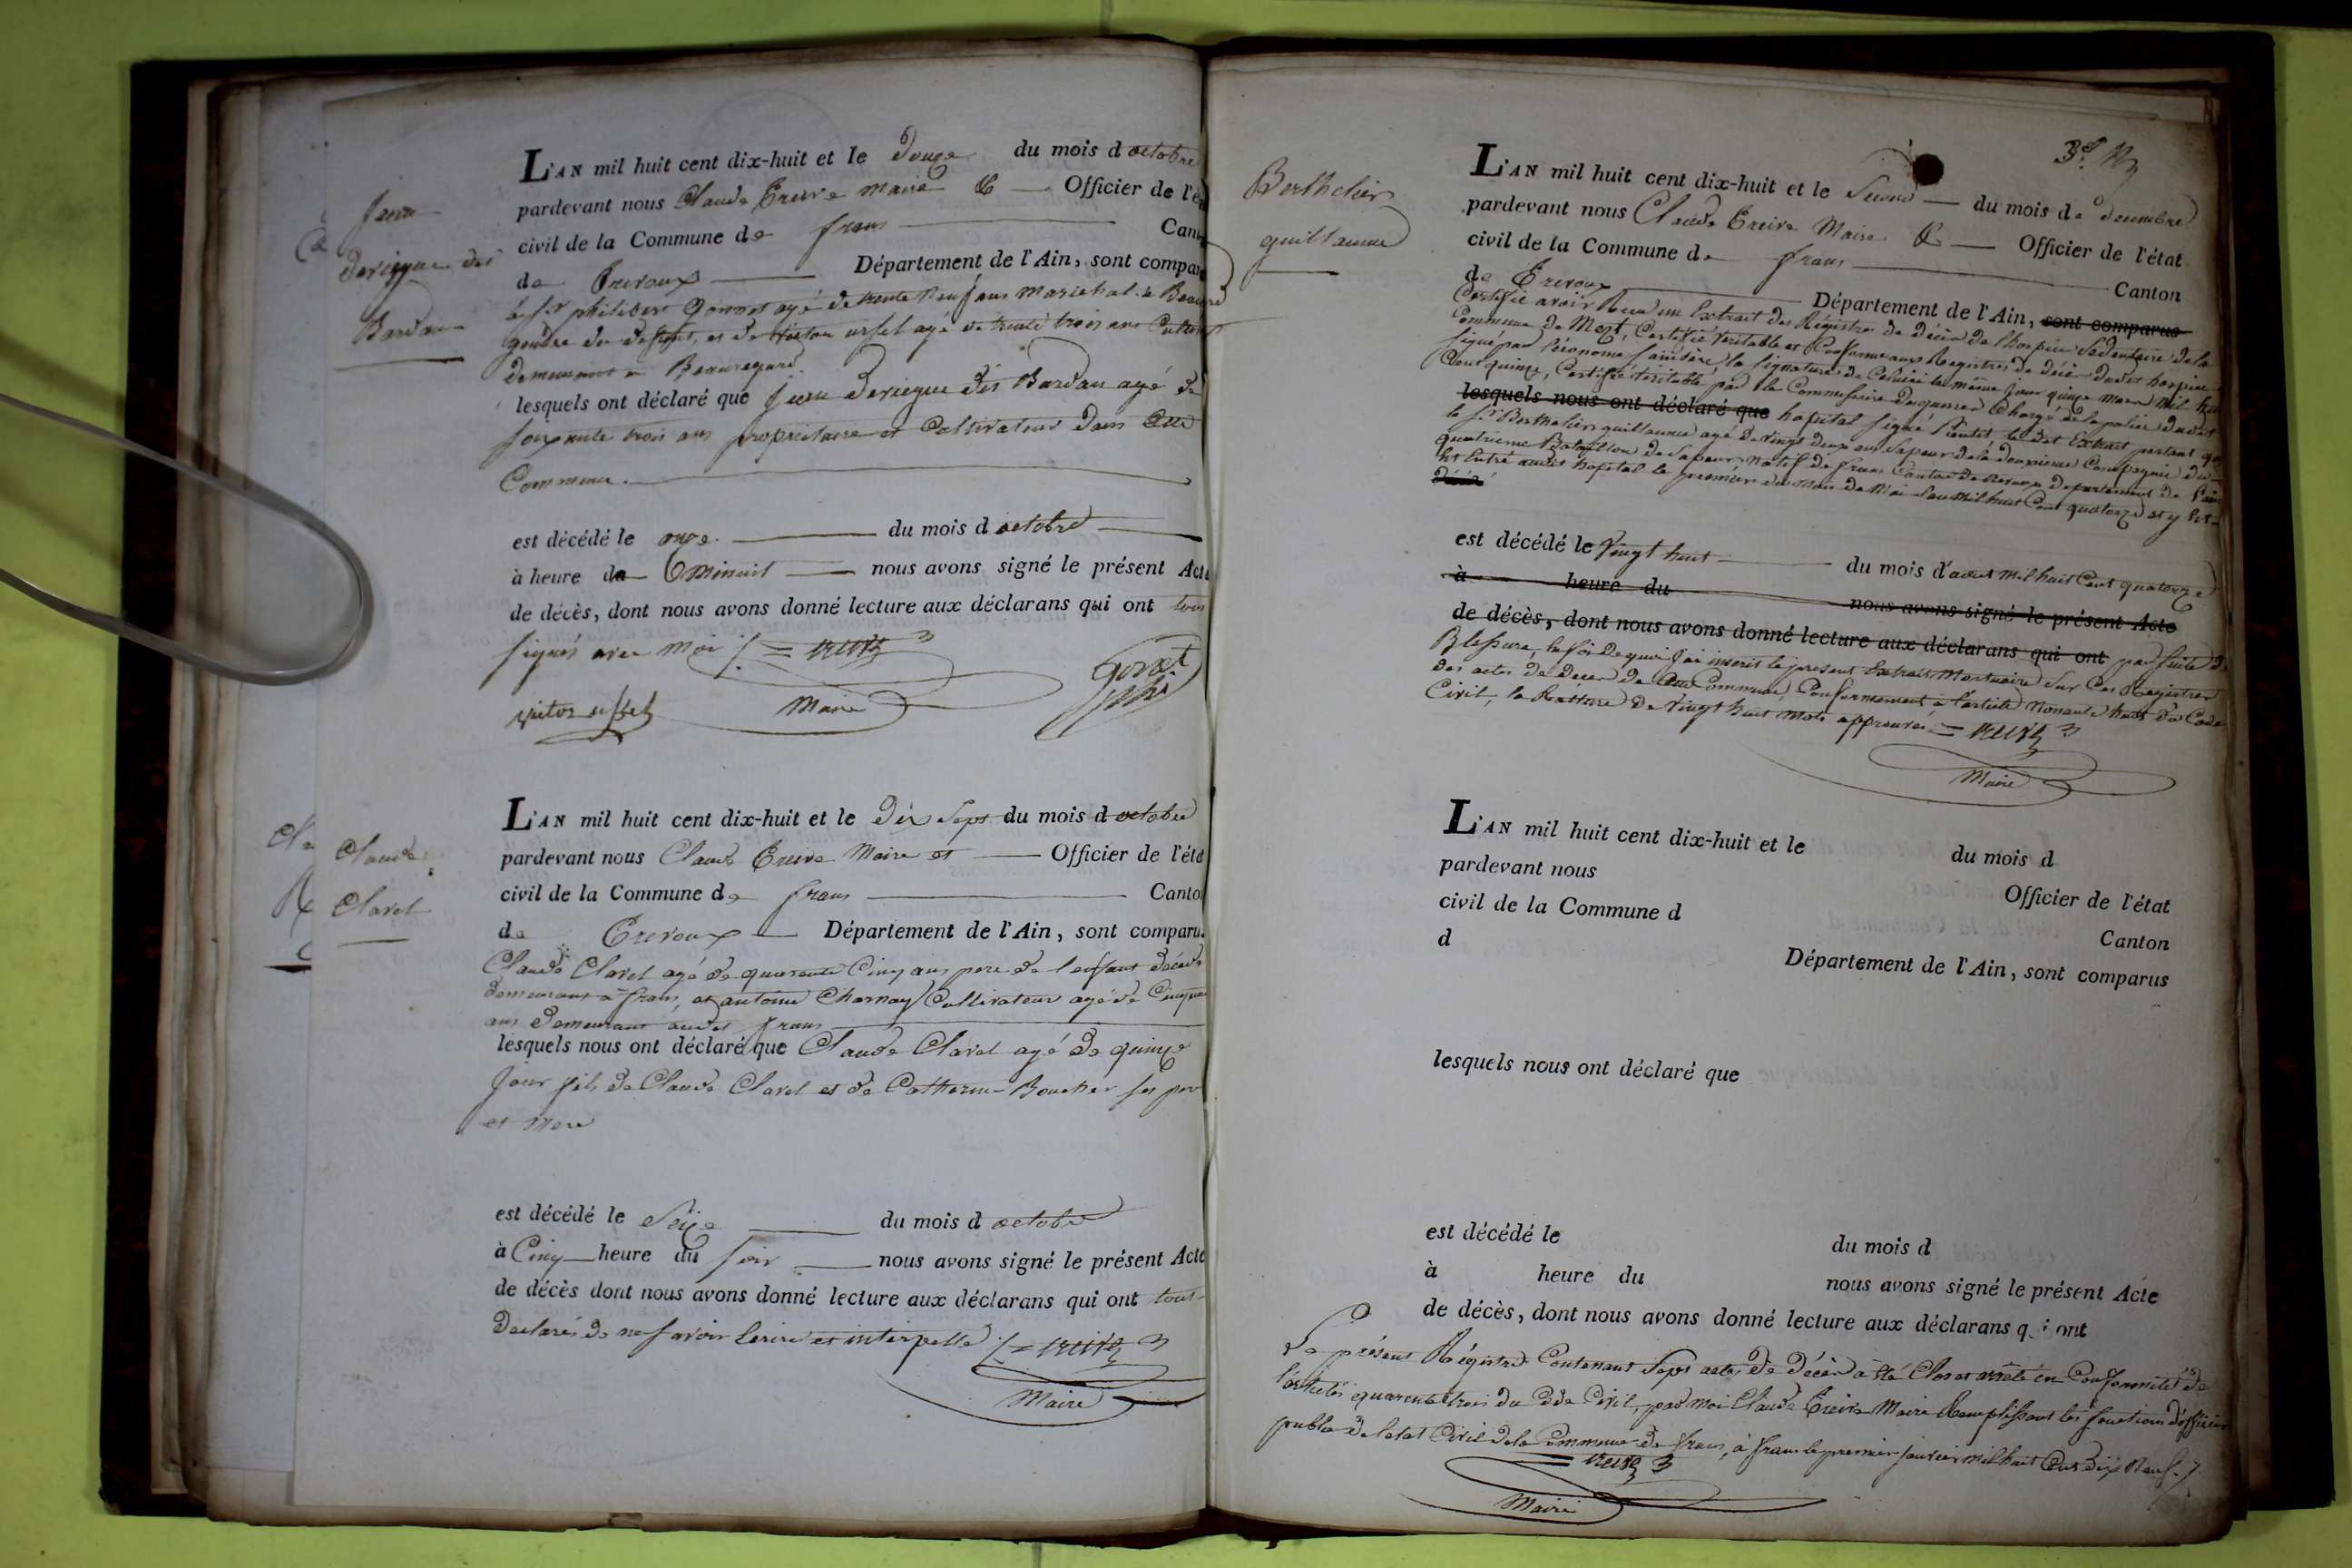 Jean
Derieque dès
Bardan
L'AN mil huit cent dix-huit et le douze du mois d octobre
pardevant nous Claude Treive maire & Officier de l'é
civil de la Commune de frans Cant
de Trevoux Département de l'Ain, sont compar
é Sr philibert Gonnet agé de trente neuf ans Maréchal à Beaure
gendre du défunt, et de Victor uffel agé de trente trois ans Cultiv
demeurant à Beauregard.
lesquels ont déclaré que Jean Derieque dès Bardan agé de
soixante trois ans propriétaire et Cultivateur dans cette
Commune.
est décédé le onze. du mois d octobre
à heure de Minuit nous avons signé le présent Acte
de décès, dont nous avons donné lecture aux déclarans qui ont tous
signés avec Moi
Maire
Claude
Clavel
L'AN mil huit cent dix-huit et le dix Sept du mois d octobre
pardevant nous Claude Treive Maire et Officier de l'état
civil de la Commune de frans Canto
de Trevoux Département de l'Ain, sont comparu
Claude Clavel agé de quarente Cinq ans pere de l'enfant décédé
demeurant à frans, et antoine Charnay Cultivateur agé de Cinquante
ans demeurant audit frans
lesquels nous ont déclaré que Claude Clavel agé de quinze
Jour fils de Claude Clavel et de Catherine Boucher ses pere
et Mere
est décédé le Seize du mois d octobre
à Cinq heure du soir nous avons signé le présent Acte
de décès dont nous avons donné lecture aux déclarans qui ont tout
declarés de ne savoir Ecrire et interpellé
Maire
Berthelier
guillaume
L'AN mil huit cent dix-huit et le Second du mois de decembre
pardevant nous Claude Treive Maire & Officier de l'état
civil de la Commune de frans Canton
de Trevoux Département de l'Ain, sont comparus
Certifié avoir Reçu un Extrait des Régistres de décès de l'hospice Sédentaire de la
Commune de Metz, Certifié Véritable et Conforme aux Registres de décès dudit hospice
signé par l'économe la signature de Celuici le même jour quinze mars Mil huit
Cent quinze, Certifié Véritable par le Commissaire des guerres Chargé de la police dudit
lesquels nous ont déclaré que hopital signé ledit Extrait portant que
le Sr Berthelier guillaume agé de Vingt deux ans Sapeur de la deuxieme Compagnie du
quatrieme Bataillon de Sapeurs Natif de frans Canton de Trevoux departement de l'ain
Est Entré audit hopital le premier du Mois de Mai l'an Mil huit Cent quatorze et y est
décédé
est décédé le Vingt huit du mois d'aout Mil huit Cent quatorze
à heure du nous avons signé le présent Acte
de décès, dont nous avons donné lecture aux déclarans qui ont par suite de
Blessure, En foi de quoi J'ai inscrit le present Extrait Mortuaire sur les Registres
des actes de décès de cette Commune, Conformement à l'article Nonante huit du Code
Civil, la Ratture de Vingt huit Mots approuvé
Maire
L'AN mil huit cent dix-huit et le du mois d
pardevant nous Officier de l'état
civil de la Commune d Canton
d Département de l'Ain, sont comparus
lesquels nous ont déclaré que
est décédé le du mois d
à heure du nous avons signé le présent Acte
de décès, dont nous avons donné lecture aux déclarans qui ont
Le présent Régistre Contenant Sept actes de décès à été Clos et arrêté en Conformité de
l'article quarente trois du Code Civil, par Moi Claude Treive Maire Remplissant les fonctions d'officier
public de l'état Civil de la Commune de frans, à frans le premier janvier mil huit Cent dix Neuf.
Maire